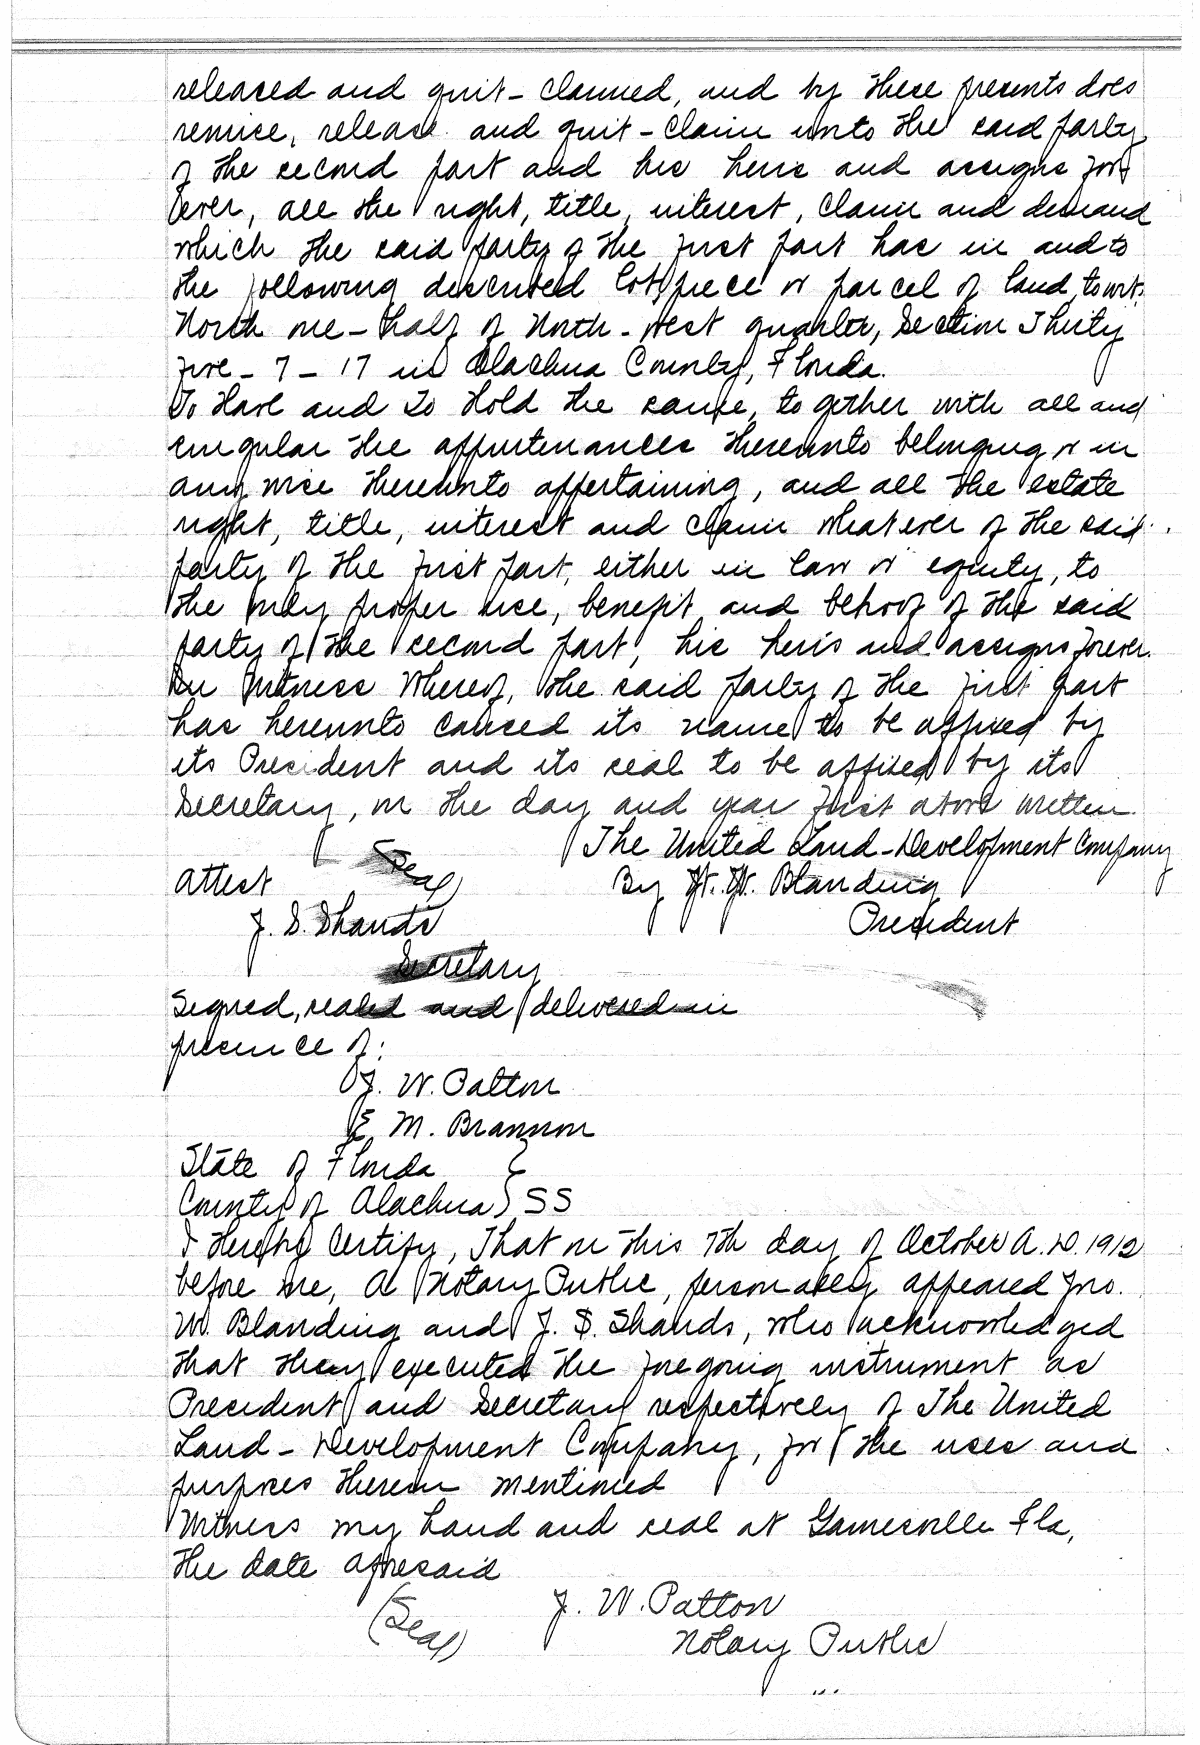 released and quit-claimed, and by these presents does
remise, release and quit-claim unto the said party
of the second part and his heirs and assigns for
ever, all the right, title, interest, claim and demand
which the said party of the first part has in and to
the following described lot, piece or parcel of land, to wit:
North one-half of North-West quarter, Section Thirty
five-7-17 in Alachua County, Florida.
To Have and To Hold the same, together with all and
singular the appurtenances thereunto belonging or in
any wise thereunto appertaining, and all the estate
right, title, interest and claim whatever of the said
party of the first part, either in law or equity, to
the only proper use, benefit and behoof of the said
party of the second part, his heirs and assigns forever.
In Witness Whereof, the said party of the first part
has hereunto caused its name to be affixed by
its President and its seal to be affixed by its
Secretary, on the day and year first above written.
The United Land-Development Company
(Seal)
Attest By W. Blanding
J. S. Shands President
Secretary
Signed, sealed and delivered in
presence of:
J. W. Patton
E. M. Brannon
State of Florida }
County of Alachua } SS
I Hereby Certify, That on this 7th day of October A.D. 1912
before me, A Notary Public, personally appeared Jno.
W. Blanding and J. S. Shands, who acknowledged
that they executed the foregoing instrument as
President and Secretary respectively of The United
Land-Development Company, for the uses and
purposes therein mentioned
Witness my hand and seal at Gainesville Fla,
the date aforesaid
J. W. Patton
(Seal) Notary Public